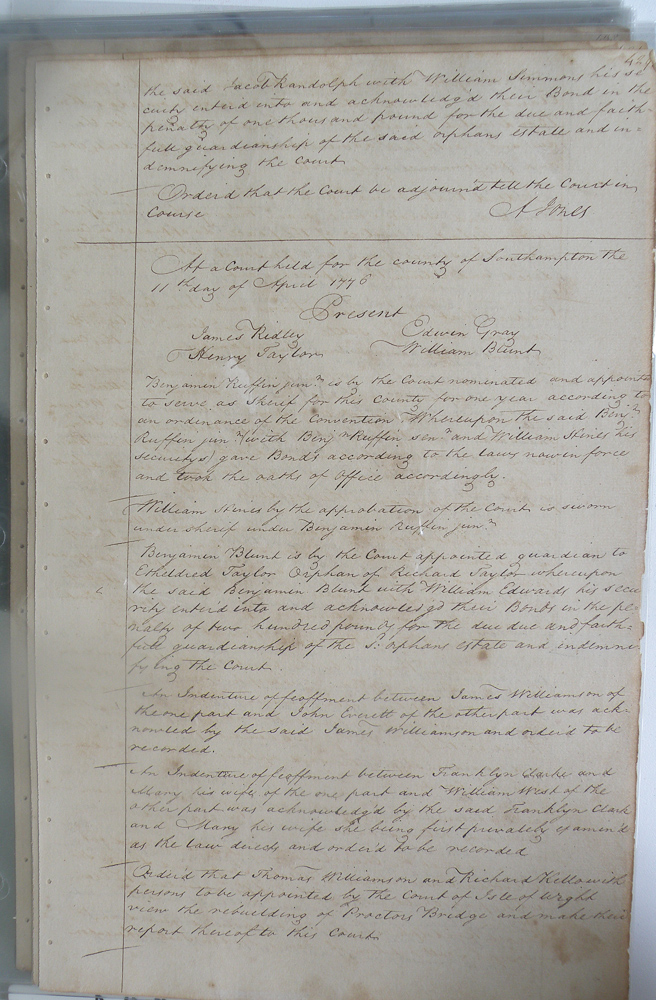 the said Jacob Randolph with William Simmons his se
curity enterd into and acknowledg'd their Bond in the
penalty of one thousand pound for the due and faith-
full guardianship of the said orphans estate and in-
demnifying the Court
Orderd that the Court be adjournd till the Court in
Course
A Jones
At a Court held for the county of Southampton the
11th day of April 1776
Present
James Ridley
Edwin Gray
Henry Taylor
William Blunt
Benjamin Ruffin junr is by the Court nominated and appoint
to serve as Sherif for this County for one year according to
an ordinance of the Convention Whereupon the said Benjn
Ruffin junr (with Benjn Ruffin senr and William Hines his
securitys) gave Bonds according to the laws now in force
and took the oaths of Office accordingly.
William Hines by the approbation of the Court is sworn
under sherif under Benjamin Ruffin junr
Benjamin Blunt is by the Court appointed guardian to
Etheldred Taylor Orphan of Richard Taylor whereupon
the said Benjamin Blunt with William Edwards his secu
rity enterd into and acknowledgd their Bonds in the pe
nalty of two hundred pounds for the due due and faith-
full guardianship of the sd orphans estate and indemne
fying the Court.
An Indenture of feoffment between James Williamson of
the one part and John Everett of the other part was ack-
nowled by the said James Williamson and order'd to be
recorded.
An Indenture of feoffment between Franklyn Clarke and
Mary his wife of the one part and William West of the
other part was acknowledg'd by the said Franklyn Clark
and Mary his wife she being first privately examin'd
as the law directs and order'd to be recorded
Order'd that Thomas Williamson and Richard Kello with
persons to be appointed by the Court of Isle of Wight
view the rebuilding of Proctors Bridge and make their
report thereof to this Court